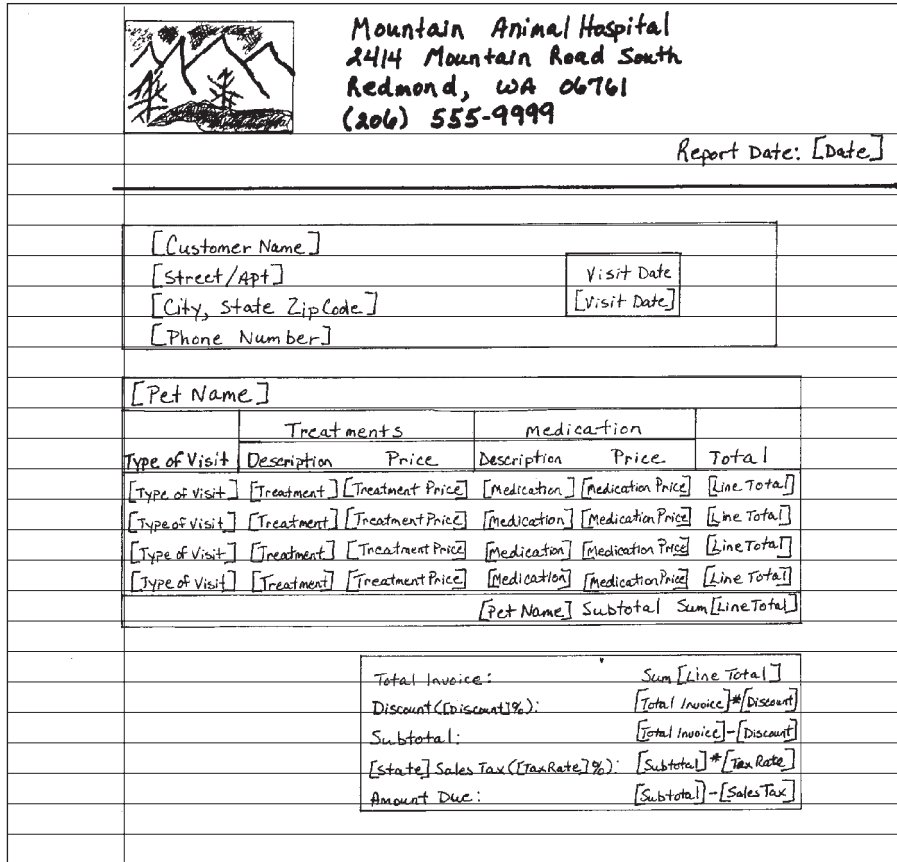 Mountain Animal Hospital
2414 Mountain Road South
Redmond, WA 06761
(206) 555-9999
Report Date: [Date]
[Customer Name]
[Street/Apt]
[City, State ZipCode]
[Phone Number]
Visit Date
[Visit Date]
[Pet Name]
Treatments Medication
Type of Visit Description Price Description Price Total
[Type of Visit] [Treatment] [Treatment Price] [Medication] [Medication Price] [Line Total]
[Type of Visit] [Treatment] [Treatment Price] [Medication] [Medication Price] [Line Total]
[Type of Visit] [Treatment] [Treatment Price] [Medication] [Medication Price] [Line Total]
[Type of Visit] [Treatment] [Treatment Price] [Medication] [Medication Price] [Line Total]
[Pet Name] Subtotal Sum[Line Total]
Total Invoice: Sum[Line Total]
Discount([Discount]%): [Total Invoice]*[Discount]
Subtotal: [Total Invoice]-[Discount]
[State] Sales Tax([TaxRate]%): [Subtotal]*[Tax Rate]
Amount Due: [Subtotal]-[Sales Tax]